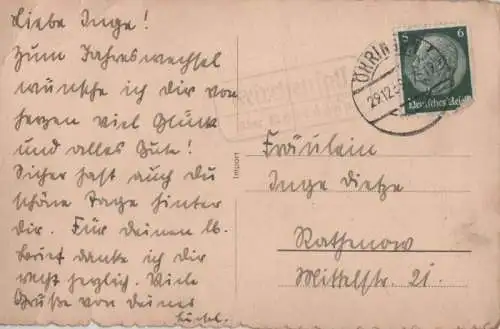 Liebe Inge!
Zum Jahreswechsel
wünsche ich dir von
Herzen viel Glück
und alles Gute!
Sicher hast auch du
schöne Tage hinter
dir. Für deinen lb.
Brief danke ich dir
recht herzlich. Viele
Grüße von deiner
Import
ÖHRINGEN
29.12.
6
Deutsches Reich
Fräulein
Inge Dietze
Rathenow
Mittelstr. 21.